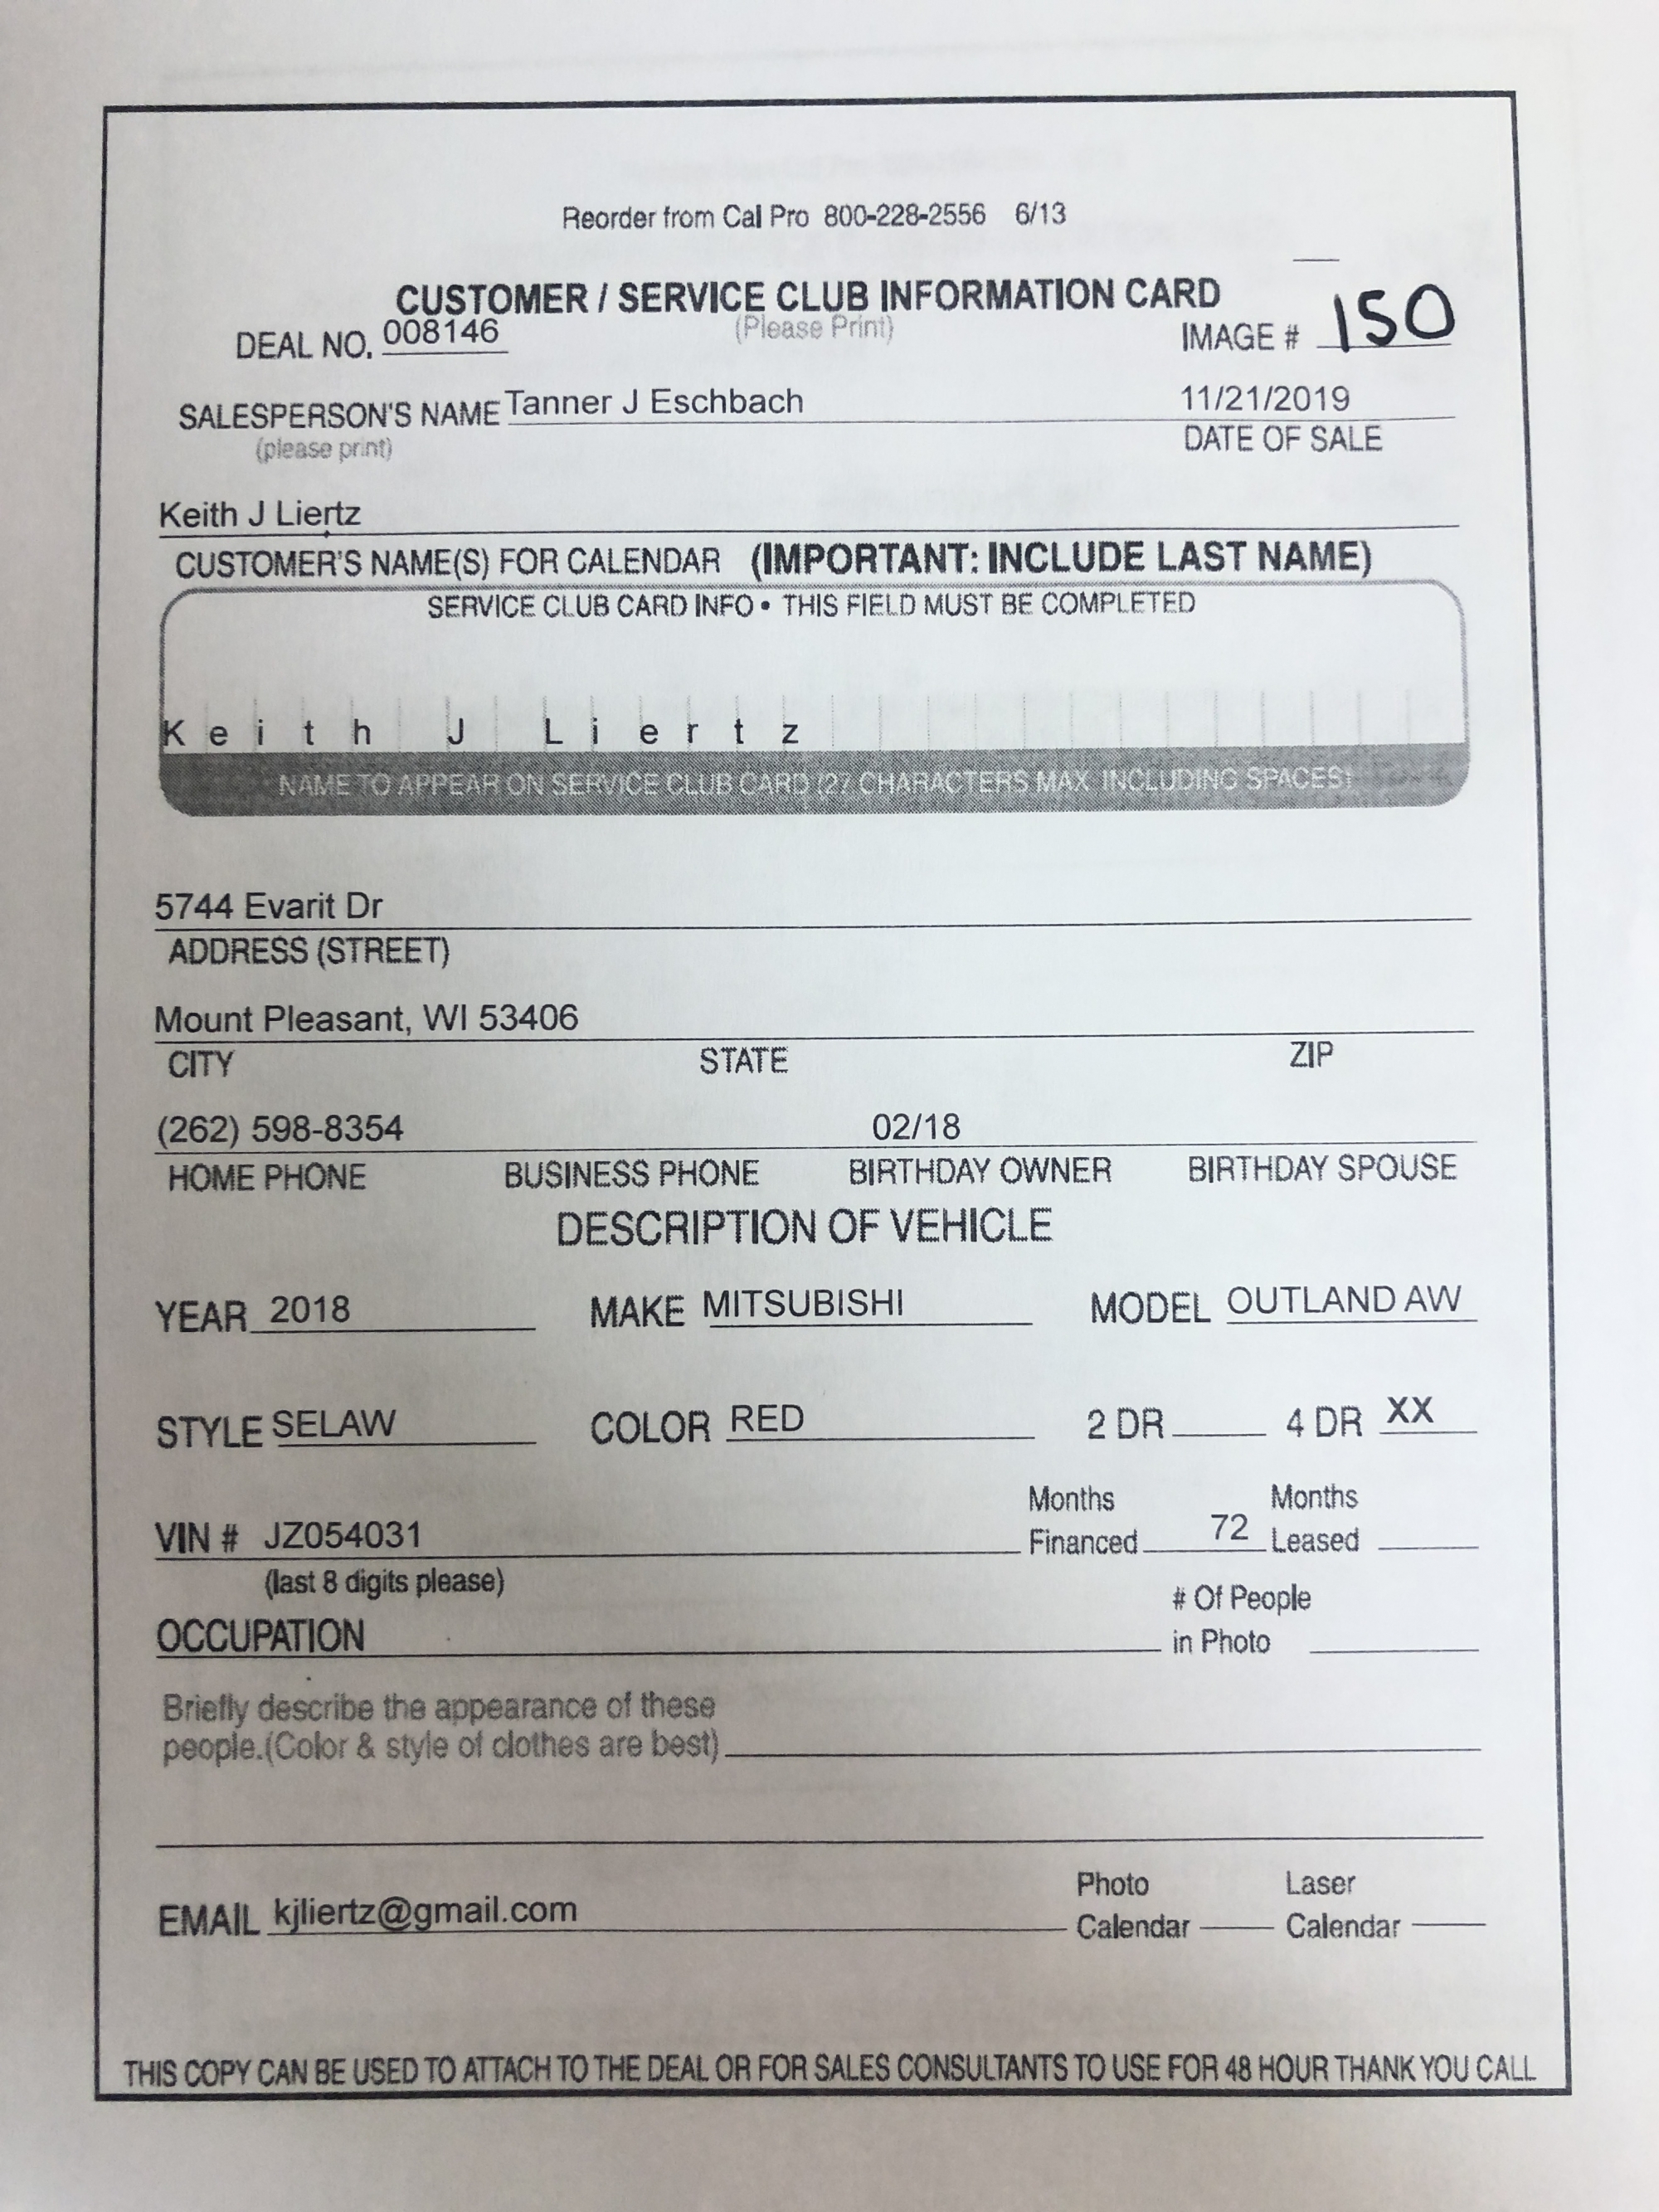 Reorder from Cal Pro 800-228-2556 6/13
CUSTOMER / SERVICE CLUB INFORMATION CARD
(Please Print)
DEAL NO. 008146
IMAGE # 150
SALESPERSON'S NAME Tanner J Eschbach 11/21/2019
(please print) DATE OF SALE
Keith J Liertz
CUSTOMER'S NAME(S) FOR CALENDAR (IMPORTANT: INCLUDE LAST NAME)
SERVICE CLUB CARD INFO • THIS FIELD MUST BE COMPLETED
Keith J Liertz
NAME TO APPEAR ON SERVICE CLUB CARD (27 CHARACTERS MAX INCLUDING SPACES)
5744 Evarit Dr
ADDRESS (STREET)
Mount Pleasant, WI 53406
CITY STATE ZIP
(262) 598-8354 02/18
HOME PHONE BUSINESS PHONE BIRTHDAY OWNER BIRTHDAY SPOUSE
DESCRIPTION OF VEHICLE
YEAR 2018 MAKE MITSUBISHI MODEL OUTLAND AW
STYLE SELAW COLOR RED 2 DR 4 DR XX
VIN # JZ054031
(last 8 digits please)
Months Financed 72
Months Leased
OCCUPATION
# Of People
in Photo
Briefly describe the appearance of these
people.(Color & style of clothes are best)
EMAIL kjliertz@gmail.com
Photo
Calendar
Laser
Calendar
THIS COPY CAN BE USED TO ATTACH TO THE DEAL OR FOR SALES CONSULTANTS TO USE FOR 48 HOUR THANK YOU CALL